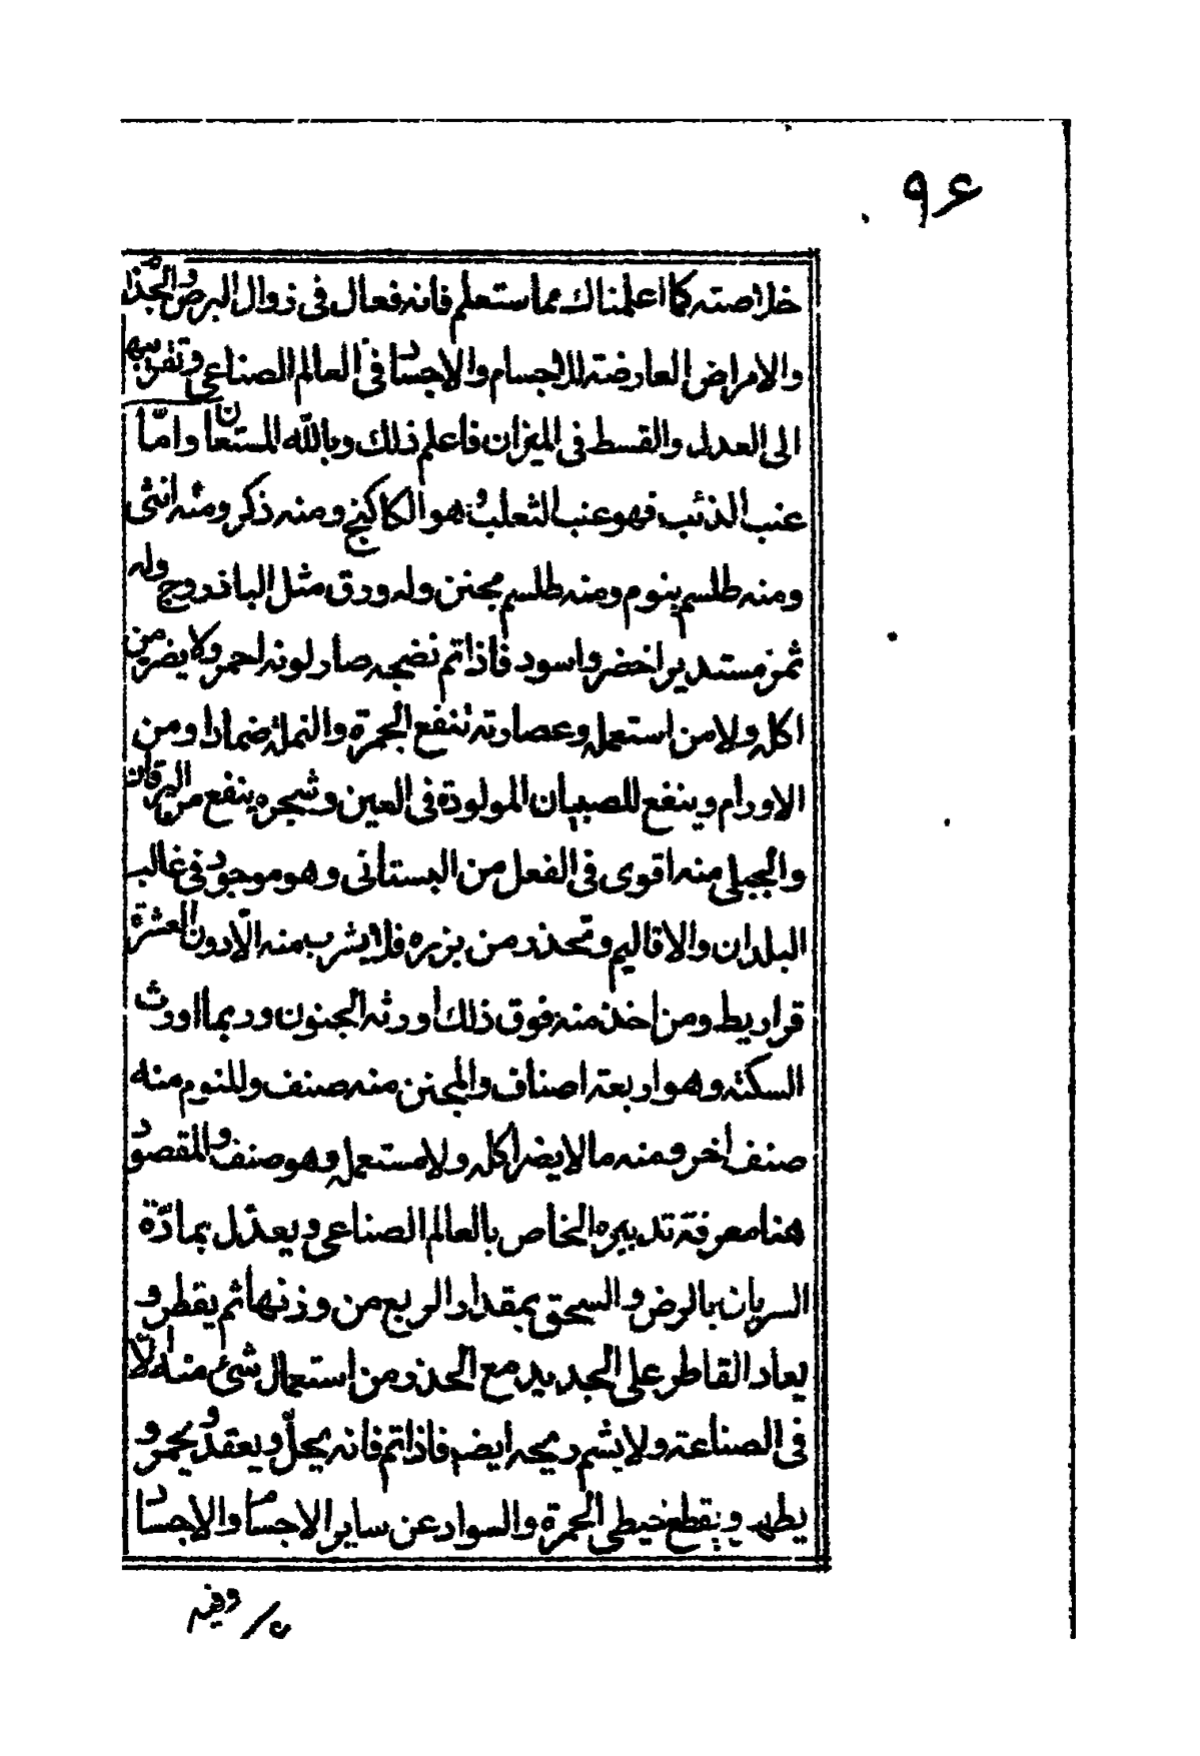 ۹۶
خلاصته كما اعلمناك مما ستعلم فانه فعال فى زوال البرص والجذا
والامراض العارضة للاجسام والاجساد فى العالم الصناعى وتقريبها
الى العدل والقسط فى الميزان فاعلم ذلك وبالله المستعان وامّا
عنب الذئب فهو عنب الثعلب وهو الكاكنج ومنه ذكر ومنه انثى
ومنه طلسم ينوم ومنه طلسم مجنن وله ورق مثل الباذروج وله
ثمر مستدير اخضر واسود فاذا تم نضجه صار لونه احمر ولا يضر من
اكله ولا من استعمله وعصارته تنفع الجمرة والنملة ضمادا ومن
الاورام وينفع للصبيان المولودة فى العين وشجره ينفع من اليرقان
والجبلى منه اقوى فى الفعل من البستانى وهو موجود فى غالب
البلدان والاقاليم وتحذر من بزره فلا يشرب منه الّا دون العشرة
قراريط ومن اخذ منه فوق ذلك اورثه الجنون وربما اورث
السكتة وهو اربعة اصناف والمجنن منه صنف وللنوم منه
صنف اخر ومنه ما لا يضر اكله ولا مستعمله وهو صنف والمقصود
هنا معرفة تدبيره الخاص بالعالم الصناعى ويعدّل بمادّة
السريان بالرض والسحق بمقدار الربع من وزنها ثم يقطر و
يعاد القاطر على الجديد مع الحذر من استعمال شئ منه الّا
فى الصناعة ولا يشم ريحه ايضه فاذا تم فانه يحلّ ويعقد ويحمر و
يطهر ويقطع خيطى الحمرة والسواد عن ساير الاجسام والاجساد
وفيه